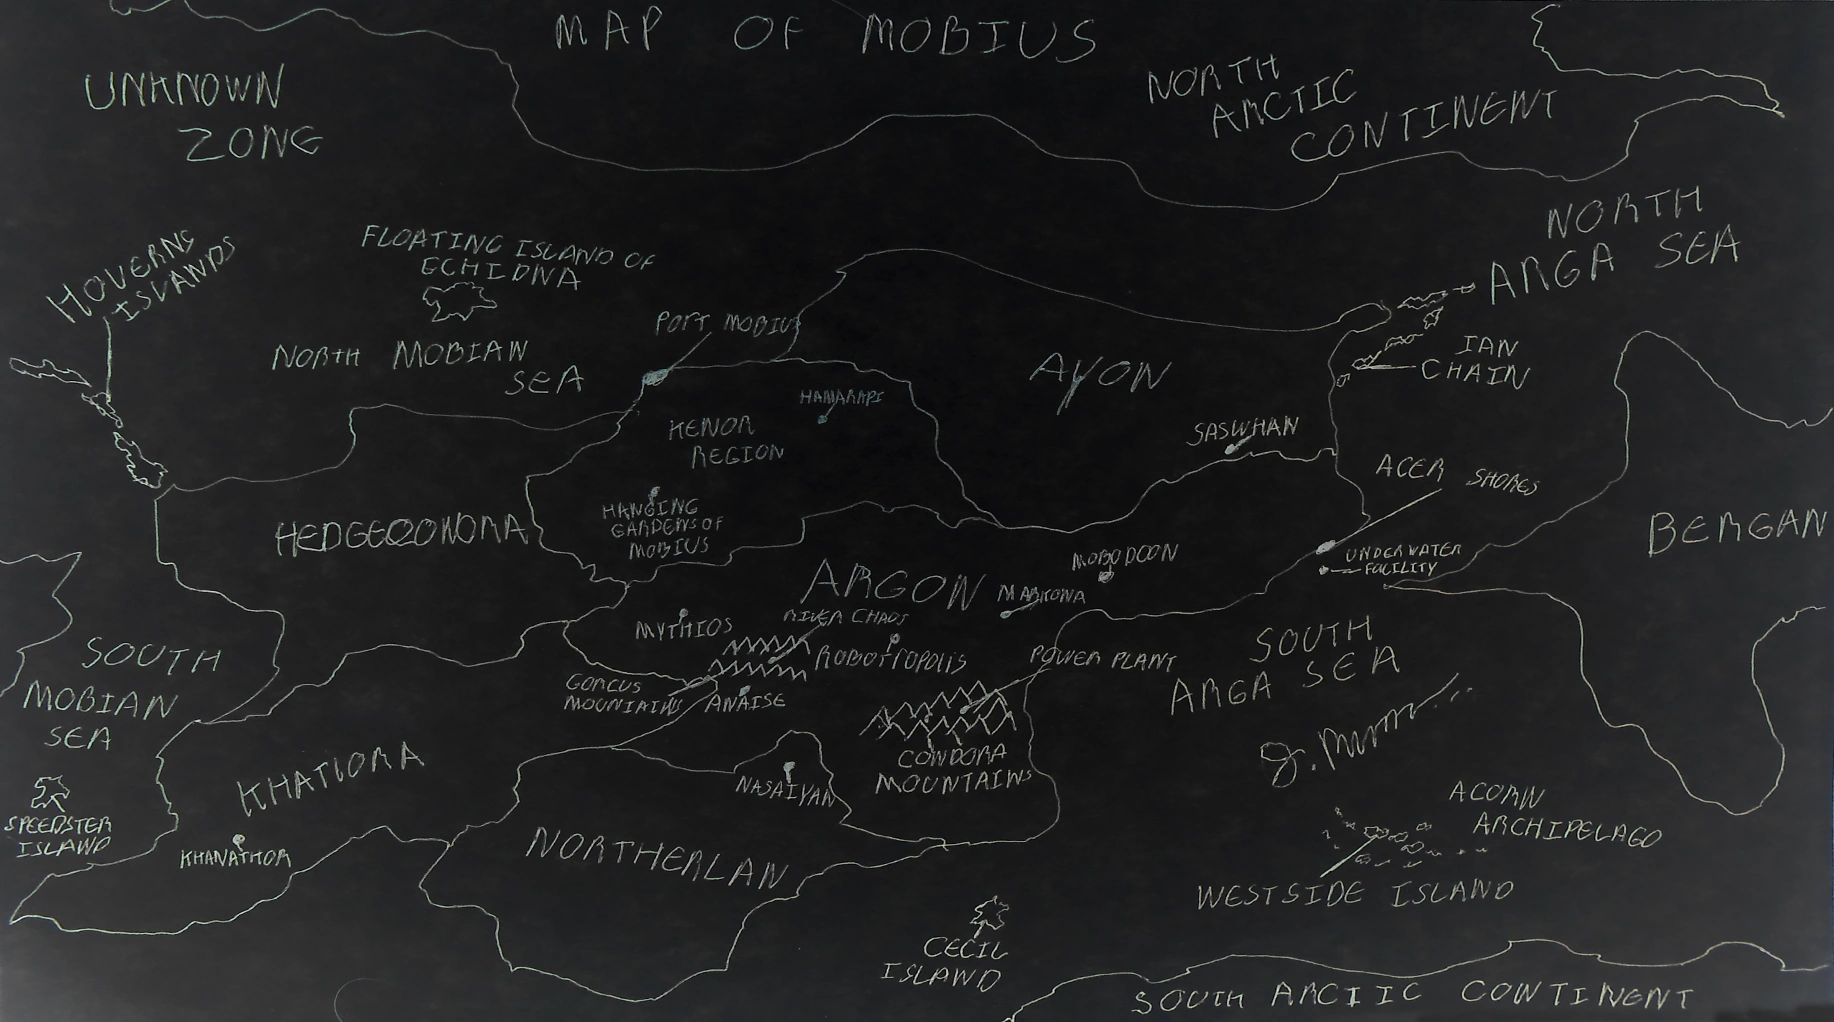 MAP OF MOBIUS
UNKNOWN
ZONE
NORTH
ARCTIC
CONTINENT
NORTH
ARGA SEA
HOVERNG
ISLANDS
FLOATING ISLAND OF
ECHIDNA
PORT MOBIUS
NORTH MOBIAN
SEA
IAN
CHAIN
AVON
HAMARAPI
KENOR
REGION
SASWHAN
ACER SHORES
HANGING
GARDENS OF
MOBIUS
BERGAN
UNDERWATER
FACILITY
MOBODOON
ARGON
RIVER CHAOS
MYTHIOS
ROBOTROPOLIS
POWER PLANT
SOUTH
ARGA SEA
SOUTH
MOBIAN
SEA
GORCUS
MOUNTAINS
ANAISE
KHATIORA
COWDORA
MOUNTAINS
NASAIYAN
SPEEDSTER
ISLAND
KHANATHOR
NORTHERLAN
ACORN
ARCHIPELAGO
WESTSIDE ISLAND
CECIL
ISLAND
SOUTH ARCTIC CONTINENT